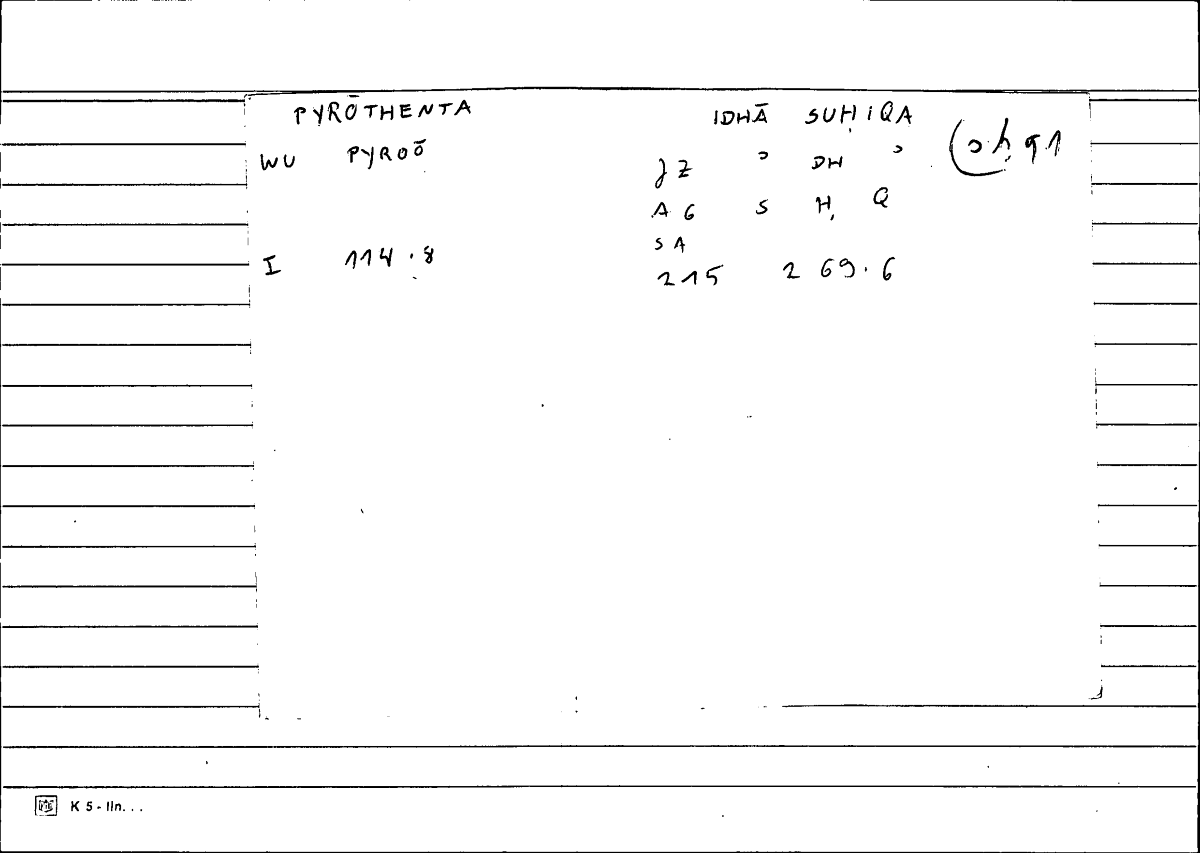 PYRŌTHENTA IDHĀ SUḤIQA
WU PYROŌ JZ ɔ DH ɔ
AG S Ḥ Q
SA
I 114.8 215 269.6
K 5 - lln. . .